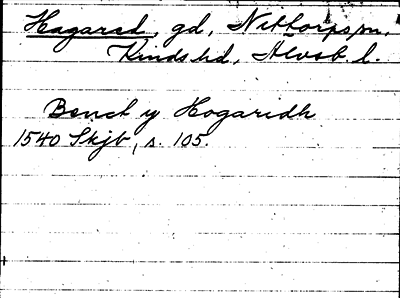 Hagarad, gd, Nittorps sn,
Kinds hd, Älvsb l.
Benct y Hogaridh
1540 Skjb, s. 105.